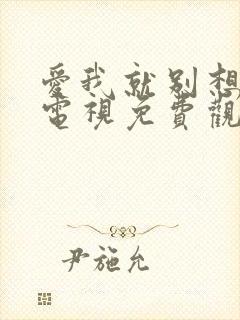 愛我就別想
電視免費觀
尹施允